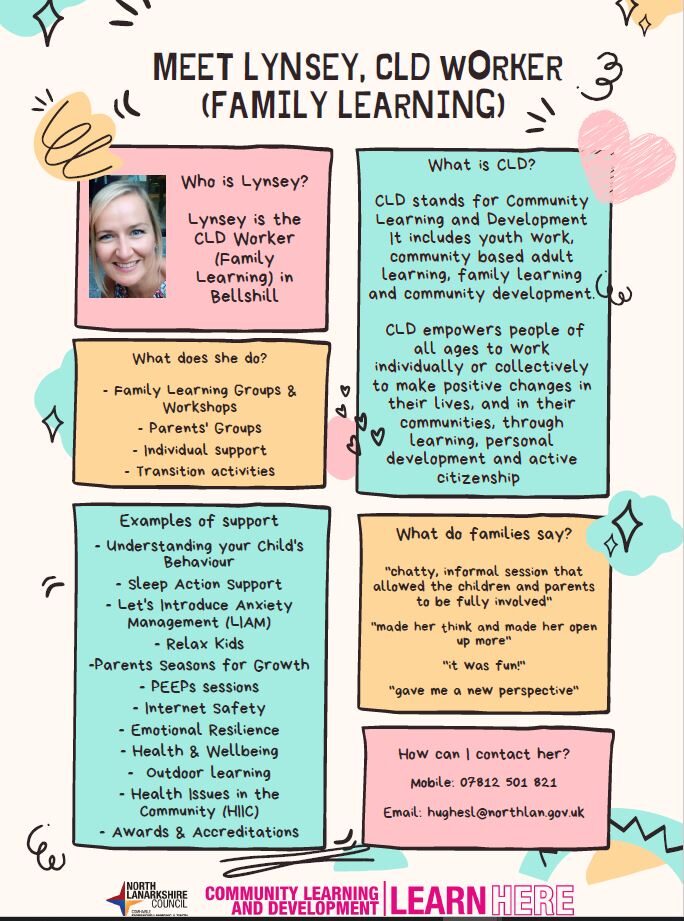 MEET LYNSEY, CLD WORKER
(FAMILY LEARNING)
Who is Lynsey?
Lynsey is the
CLD Worker
(Family
Learning) in
Bellshill
What does she do?
- Family Learning Groups &
Workshops
- Parents' Groups
- Individual support
- Transition activities
Examples of support
- Understanding your Child's
Behaviour
- Sleep Action Support
- Let's Introduce Anxiety
Management (LIAM)
- Relax Kids
-Parents Seasons for Growth
- PEEPs sessions
- Internet Safety
- Emotional Resilience
- Health & Wellbeing
- Outdoor learning
- Health Issues in the
Community (HIIC)
- Awards & Accreditations
What is CLD?
CLD stands for Community
Learning and Development
It includes youth work,
community based adult
learning, family learning
and community development.
CLD empowers people of
all ages to work
individually or collectively
to make positive changes in
their lives, and in their
communities, through
learning, personal
development and active
citizenship
What do families say?
"chatty, informal session that
allowed the children and parents
to be fully involved"
"made her think and made her open
up more"
"it was fun!"
"gave me a new perspective"
How can I contact her?
Mobile: 07812 501 821
Email: hughesl@northlan.gov.uk
NORTH
LANARKSHIRE
COUNCIL
COMMUNITY LEARNING
AND DEVELOPMENT
LEARN HERE